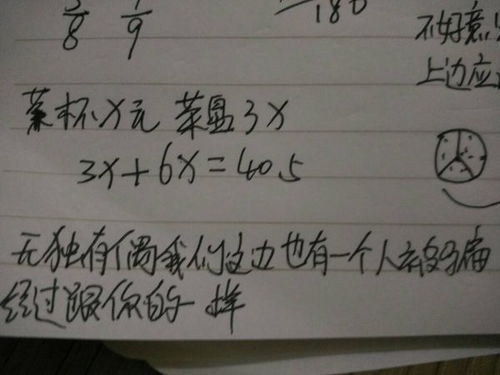 5/8 1/9
180
不好意
上边应
茶杯x元 茶盘3x
3x+6x=40.5
无独有偶我们这边也有一个人被
经过跟你的一样